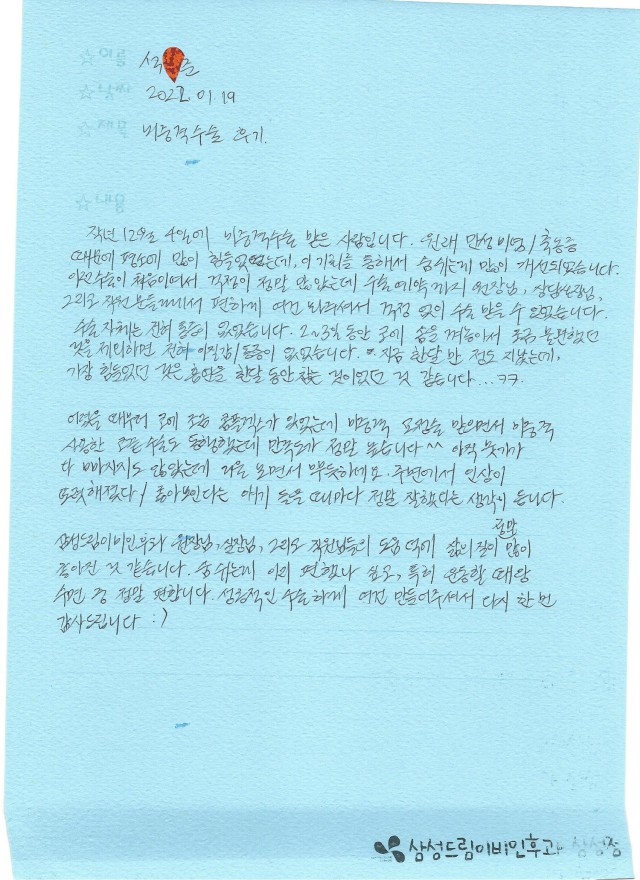 석 준
2022. 01. 19
비중격수술 후기.
작년 12월 4일에 비중격수술 받은 사람입니다. 원래 만성비염/축농증
때문에 평소에 많이 힘들었었는데, 이 기회를 통해서 숨쉬는게 많이 개선되었습니다.
수술이 처음이여서 걱정이 정말 많았는데 수술예약까지 원장님, 상담실장님,
그리고 직원분들께서 편하게 여건 봐주셔서 걱정 없이 수술 받을 수 있었습니다.
수술 자체는 전혀 통증이 없었습니다. 2~3일 동안 코에 솜을 껴놓아서 조금 불편했던
것을 제외하면 전혀 이질감/통증이 없었습니다. 지금 한달 반 정도 지났는데,
가장 힘들었던 것은 흡연을 한달 동안 참는 것이었던 것 같습니다... ㅋㅋ.
어렸을 때부터 코에 조금 콤플렉스가 있었는데 비중격 교정술 받으면서 비중격
사용한 코끝수술도 동행했는데 만족도가 정말 높습니다^^ 아직 붓기가
다 빠지지도 않았는데 거울 보면서 뿌듯하네요. 주변에서 인상이
또렷해졌다/좋아보인다는 얘기 들을 때마다 정말 잘했다는 생각이 듭니다.
정말
삼성드림이비인후과 원장님, 실장님, 그리고 직원님들의 도움 덕에 삶의 질이 많이
좋아진 것 같습니다. 숨쉬는게 이리 편했나 싶고, 특히 운동할 때랑
수면 중 정말 편합니다. 성공적인 수술하게 여건 만들어주셔서 다시 한 번
감사드립니다 :)
삼성드림이비인후과